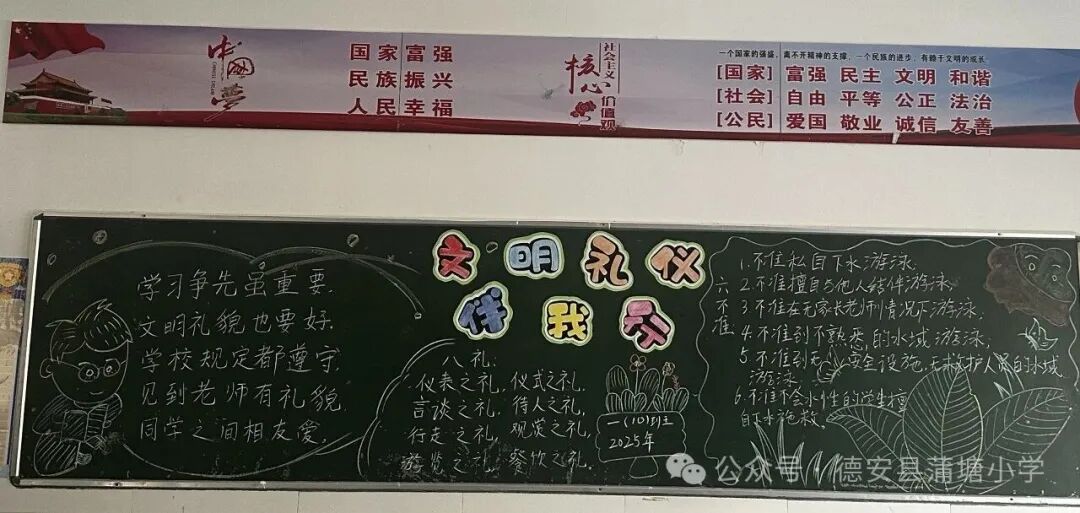 中国梦
国家富强
民族振兴
人民幸福
社会主义
核心
价值观
一个国家的强盛，离不开精神的支撑，一个民族的进步，有赖于文明的成长
[国家] 富强 民主 文明 和谐
[社会] 自由 平等 公正 法治
[公民] 爱国 敬业 诚信 友善
文明礼仪
伴我行
学习争先虽重要，
文明礼貌也要好，
学校规定都遵守，
见到老师有礼貌，
同学之间相友爱。
八礼：
仪表之礼，仪式之礼，
言谈之礼，待人之礼，
行走之礼，观赏之礼，
游览之礼，餐饮之礼。
一(10)班
2025年
六不准
1.不准私自下水游泳
2.不准擅自与他人结伴游泳
3.不准在无家长老师情况下游泳，
4.不准到不熟悉的水域游泳，
5.不准到无安全设施、无救护人员的水域
游泳
6.不准不会水性的学生擅
自下水施救。
公众号·德安县蒲塘小学